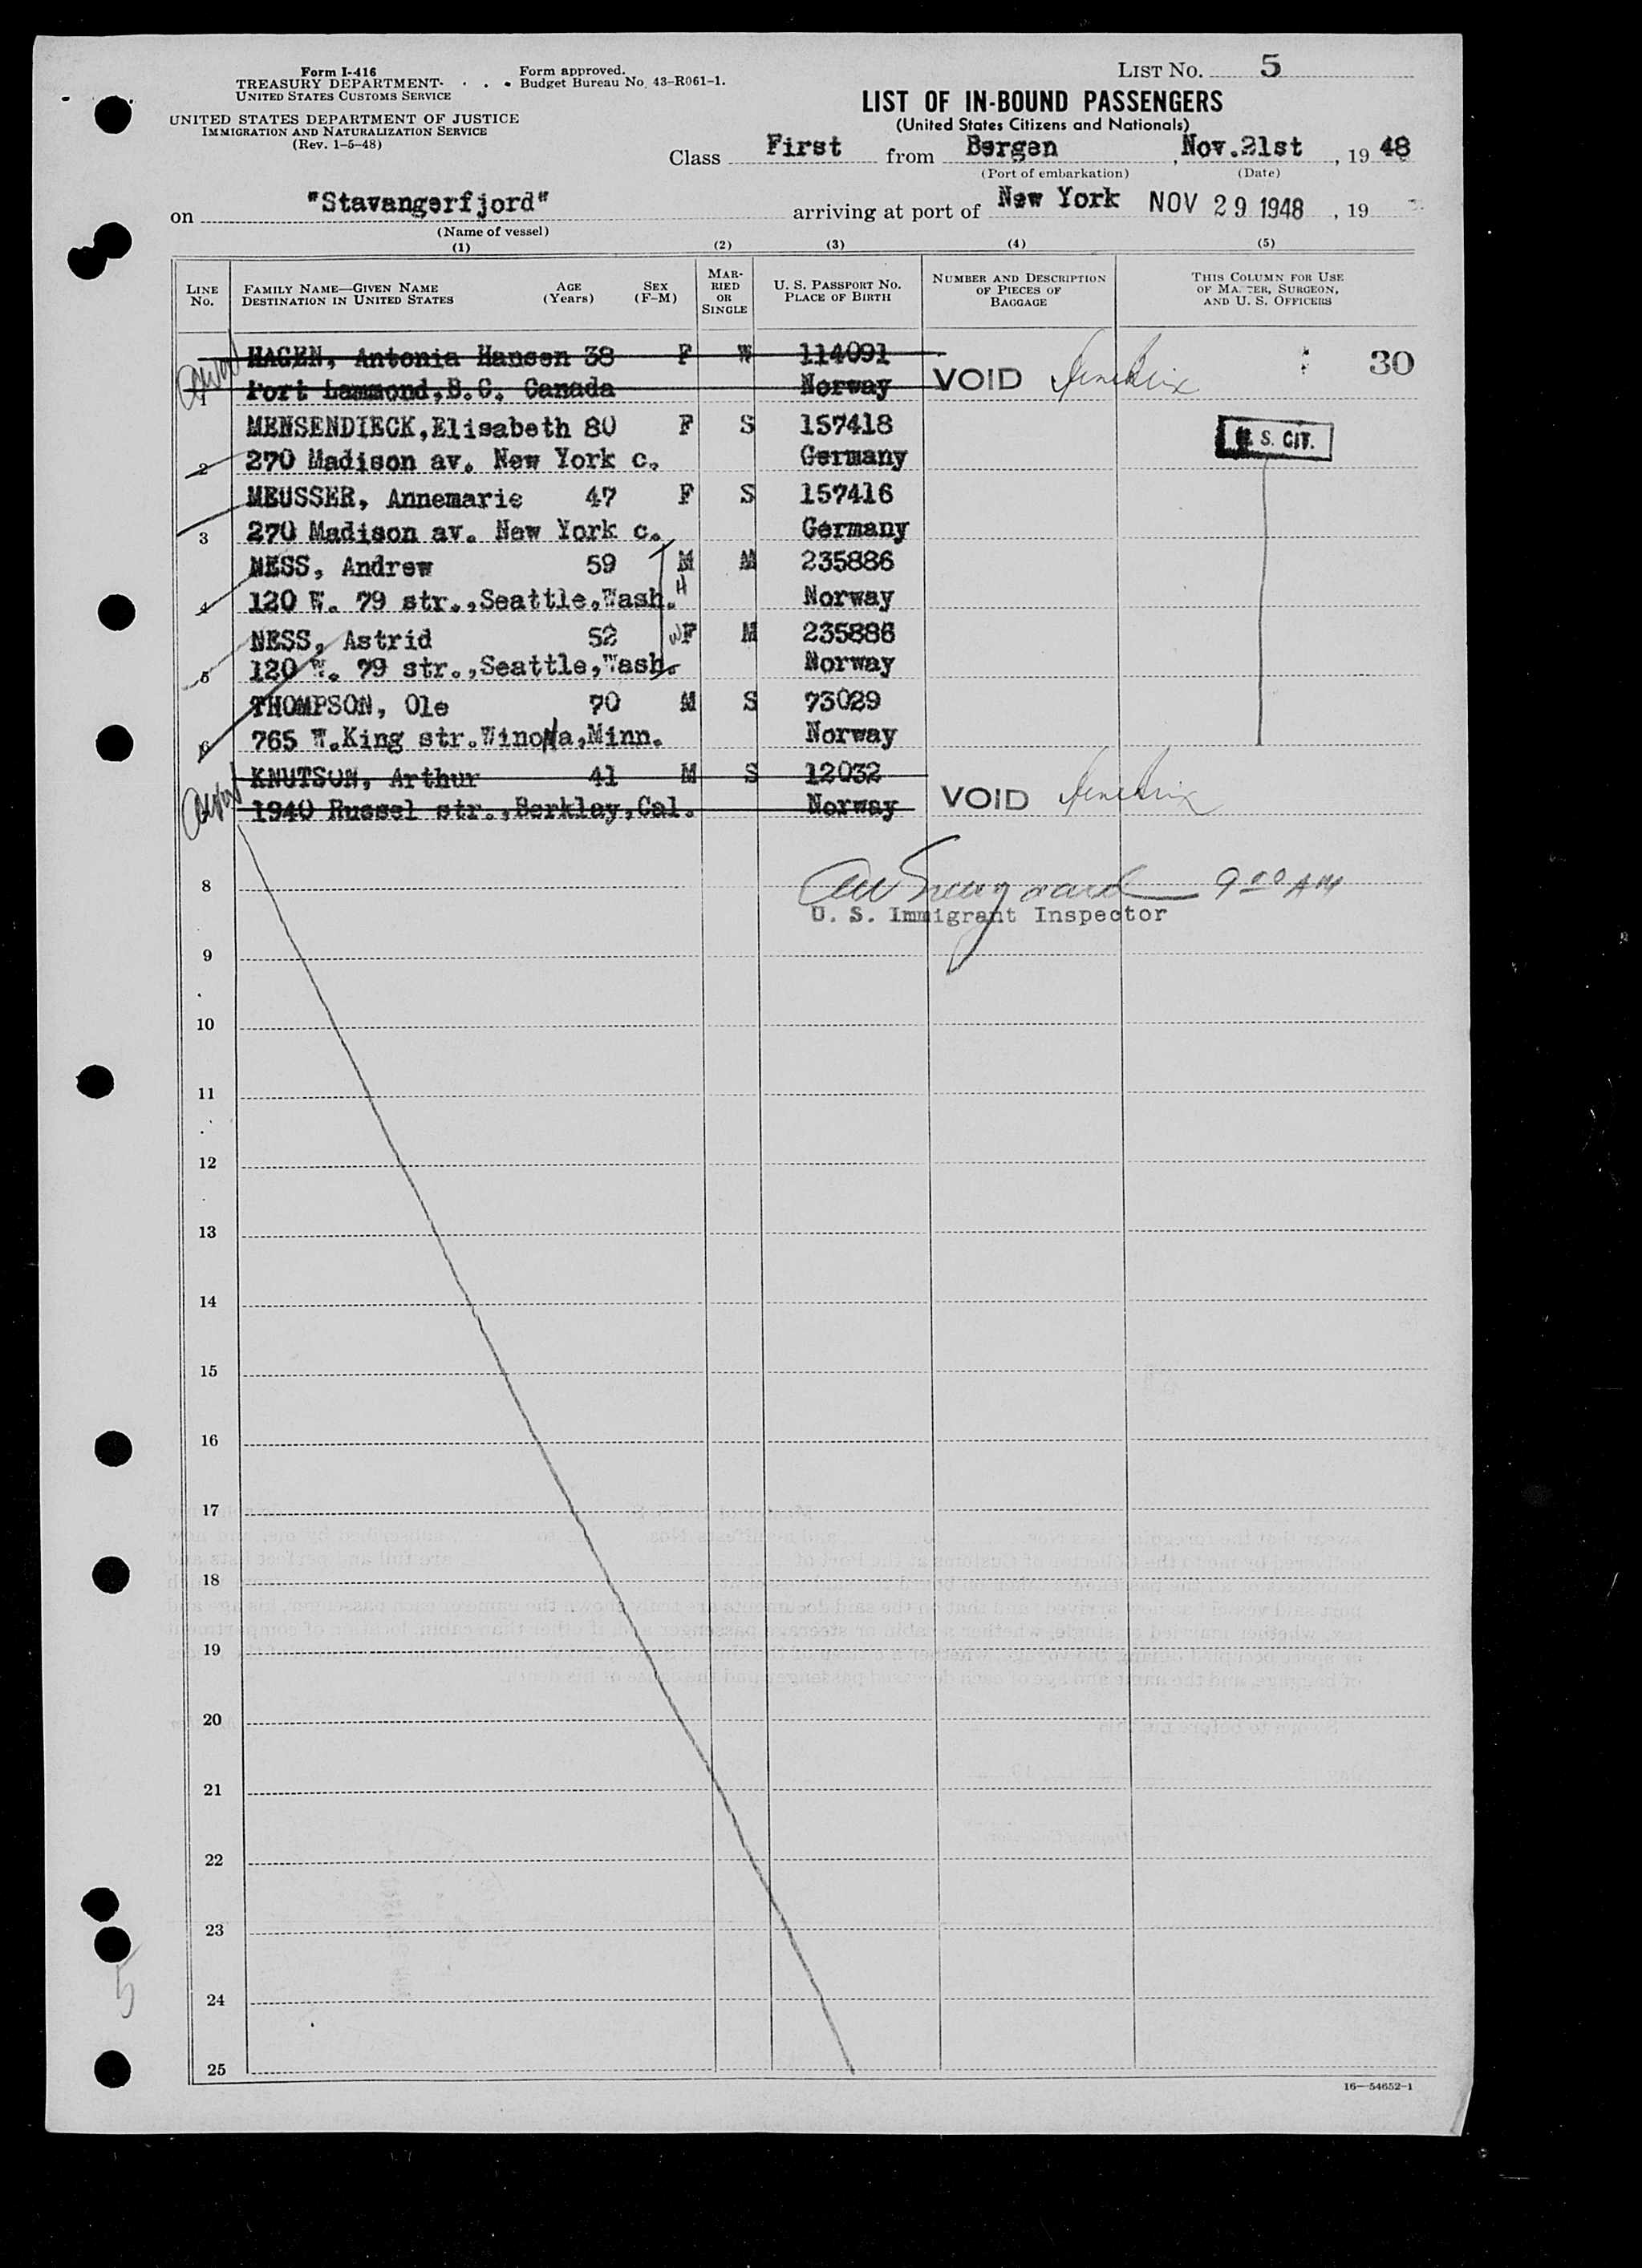 Form I-416
TREASURY DEPARTMENT
UNITED STATES CUSTOMS SERVICE
Form approved.
Budget Bureau No. 43-R061-1.
UNITED STATES DEPARTMENT OF JUSTICE
IMMIGRATION AND NATURALIZATION SERVICE
(Rev. 1-5-48)
LIST NO. 5
LIST OF IN-BOUND PASSENGERS
(United States Citizens and Nationals)
Class First from Bergen, Nov.21st, 19 48
(Port of embarkation) (Date)
on "Stavangerfjord" arriving at port of New York NOV 29 1948, 19
(Name of vessel)
(1) (2) (3) (4) (5)
LINE No. FAMILY NAME—GIVEN NAME DESTINATION IN UNITED STATES AGE (Years) SEX (F-M) MARRIED OR SINGLE U. S. PASSPORT NO. PLACE OF BIRTH NUMBER AND DESCRIPTION OF PIECES OF BAGGAGE THIS COLUMN FOR USE OF MASTER, SURGEON, AND U. S. OFFICERS
HAGEN, Antonia Hansen 38 F W 114091 30
1 Port Lammond, B.C. Canada Norway VOID
MENSENDIECK, Elisabeth 80 F S 157418 U. S. CIT.
2 270 Madison av. New York c. Germany
MEUSSER, Annemarie 47 F S 157416
3 270 Madison av. New York c. Germany
NESS, Andrew 59 M M 235886
4 120 W. 79 str., Seattle, Wash. H Norway
NESS, Astrid 52 W F M 235886
5 120 W. 79 str., Seattle, Wash. Norway
THOMPSON, Ole 70 M S 73029
6 765 W. King str. Winona, Minn. Norway
KNUTSON, Arthur 41 M S 12032
1940 Russel str., Berkley, Cal. Norway VOID
8 9 00 AM
U. S. Immigrant Inspector
9
10
11
12
13
14
15
16
17
18
19
20
21
22
23
24
5
25
16—54652-1